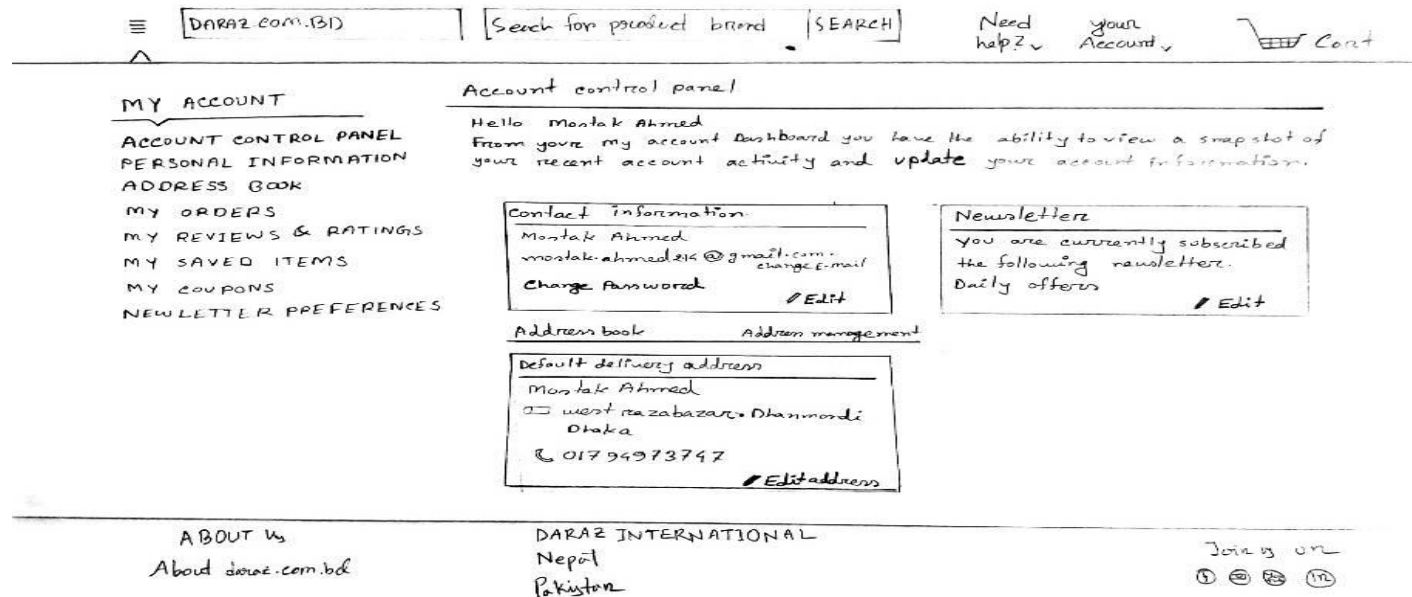 DARAZ.COM.BD
Seach for product brand
SEARCH
Need help?
your Account
Cart
MY ACCOUNT
ACCOUNT CONTROL PANEL
PERSONAL INFORMATION
ADDRESS BOOK
MY ORDERS
MY REVIEWS & RATINGS
MY SAVED ITEMS
MY COUPONS
NEWLETTER PREFERENCES
Account control panel
Hello Mostak Ahmed
From your my account Dashboard you have the ability to view a snapshot of
your recent account activity and update your account information.
Contact information
Mostak Ahmed
mostak.ahmed214@gmail.com.
change E-mail
Change Password
Edit
Newsletter
You are currently subscribed
the following newsletter.
Daily offers
Edit
Address book
Address management
Default delivery address
Mostak Ahmed
west razabazar. Dhanmondi
Dhaka
01794973747
Edit address
ABOUT Us
About daraz.com.bd
DARAZ INTERNATIONAL
Nepal
Pakistan
Join us on
in